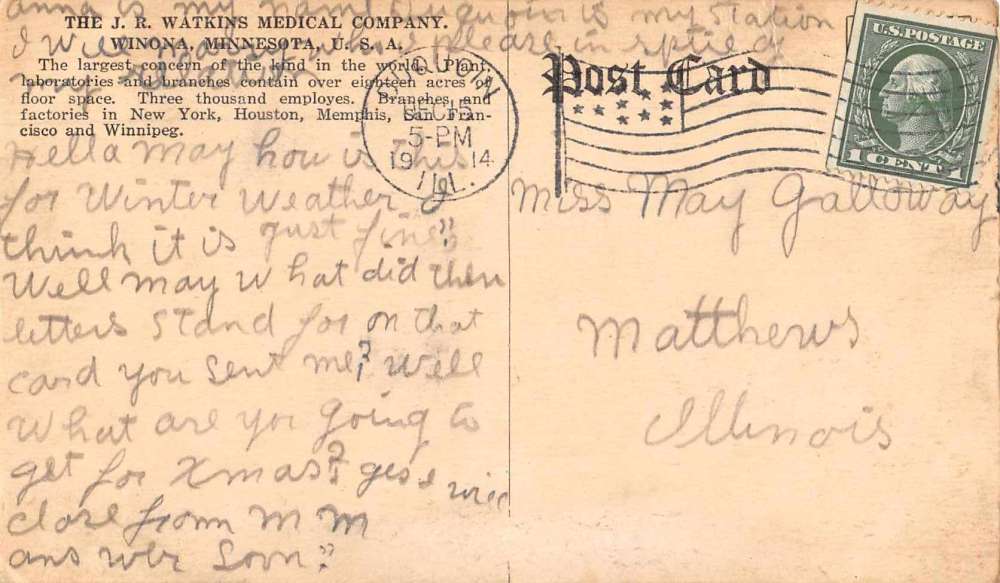 anna is my name Duquoin is my station
I will
please in
my
THE J. R. WATKINS MEDICAL COMPANY.
WINONA, MINNESOTA, U. S. A.
The largest concern of the kind in the world. Plant,
laboratories and branches contain over eighteen acres of
floor space. Three thousand employes. Branches and
factories in New York, Houston, Memphis, San Fran-
cisco and Winnipeg.
DU QUOIN
DEC 15
5-PM
19 14
ILL.
Post Card
U.S. POSTAGE
1 CENT 1
Hella may how is this
for Winter Weather I
think it is Just fine?
Well may what did then
letters stand for on that
card you sent me? Well
what are you going to
get for Xmas? ges I will
close from M M
answer soon?
Miss May Galloway
Matthews
Illinois